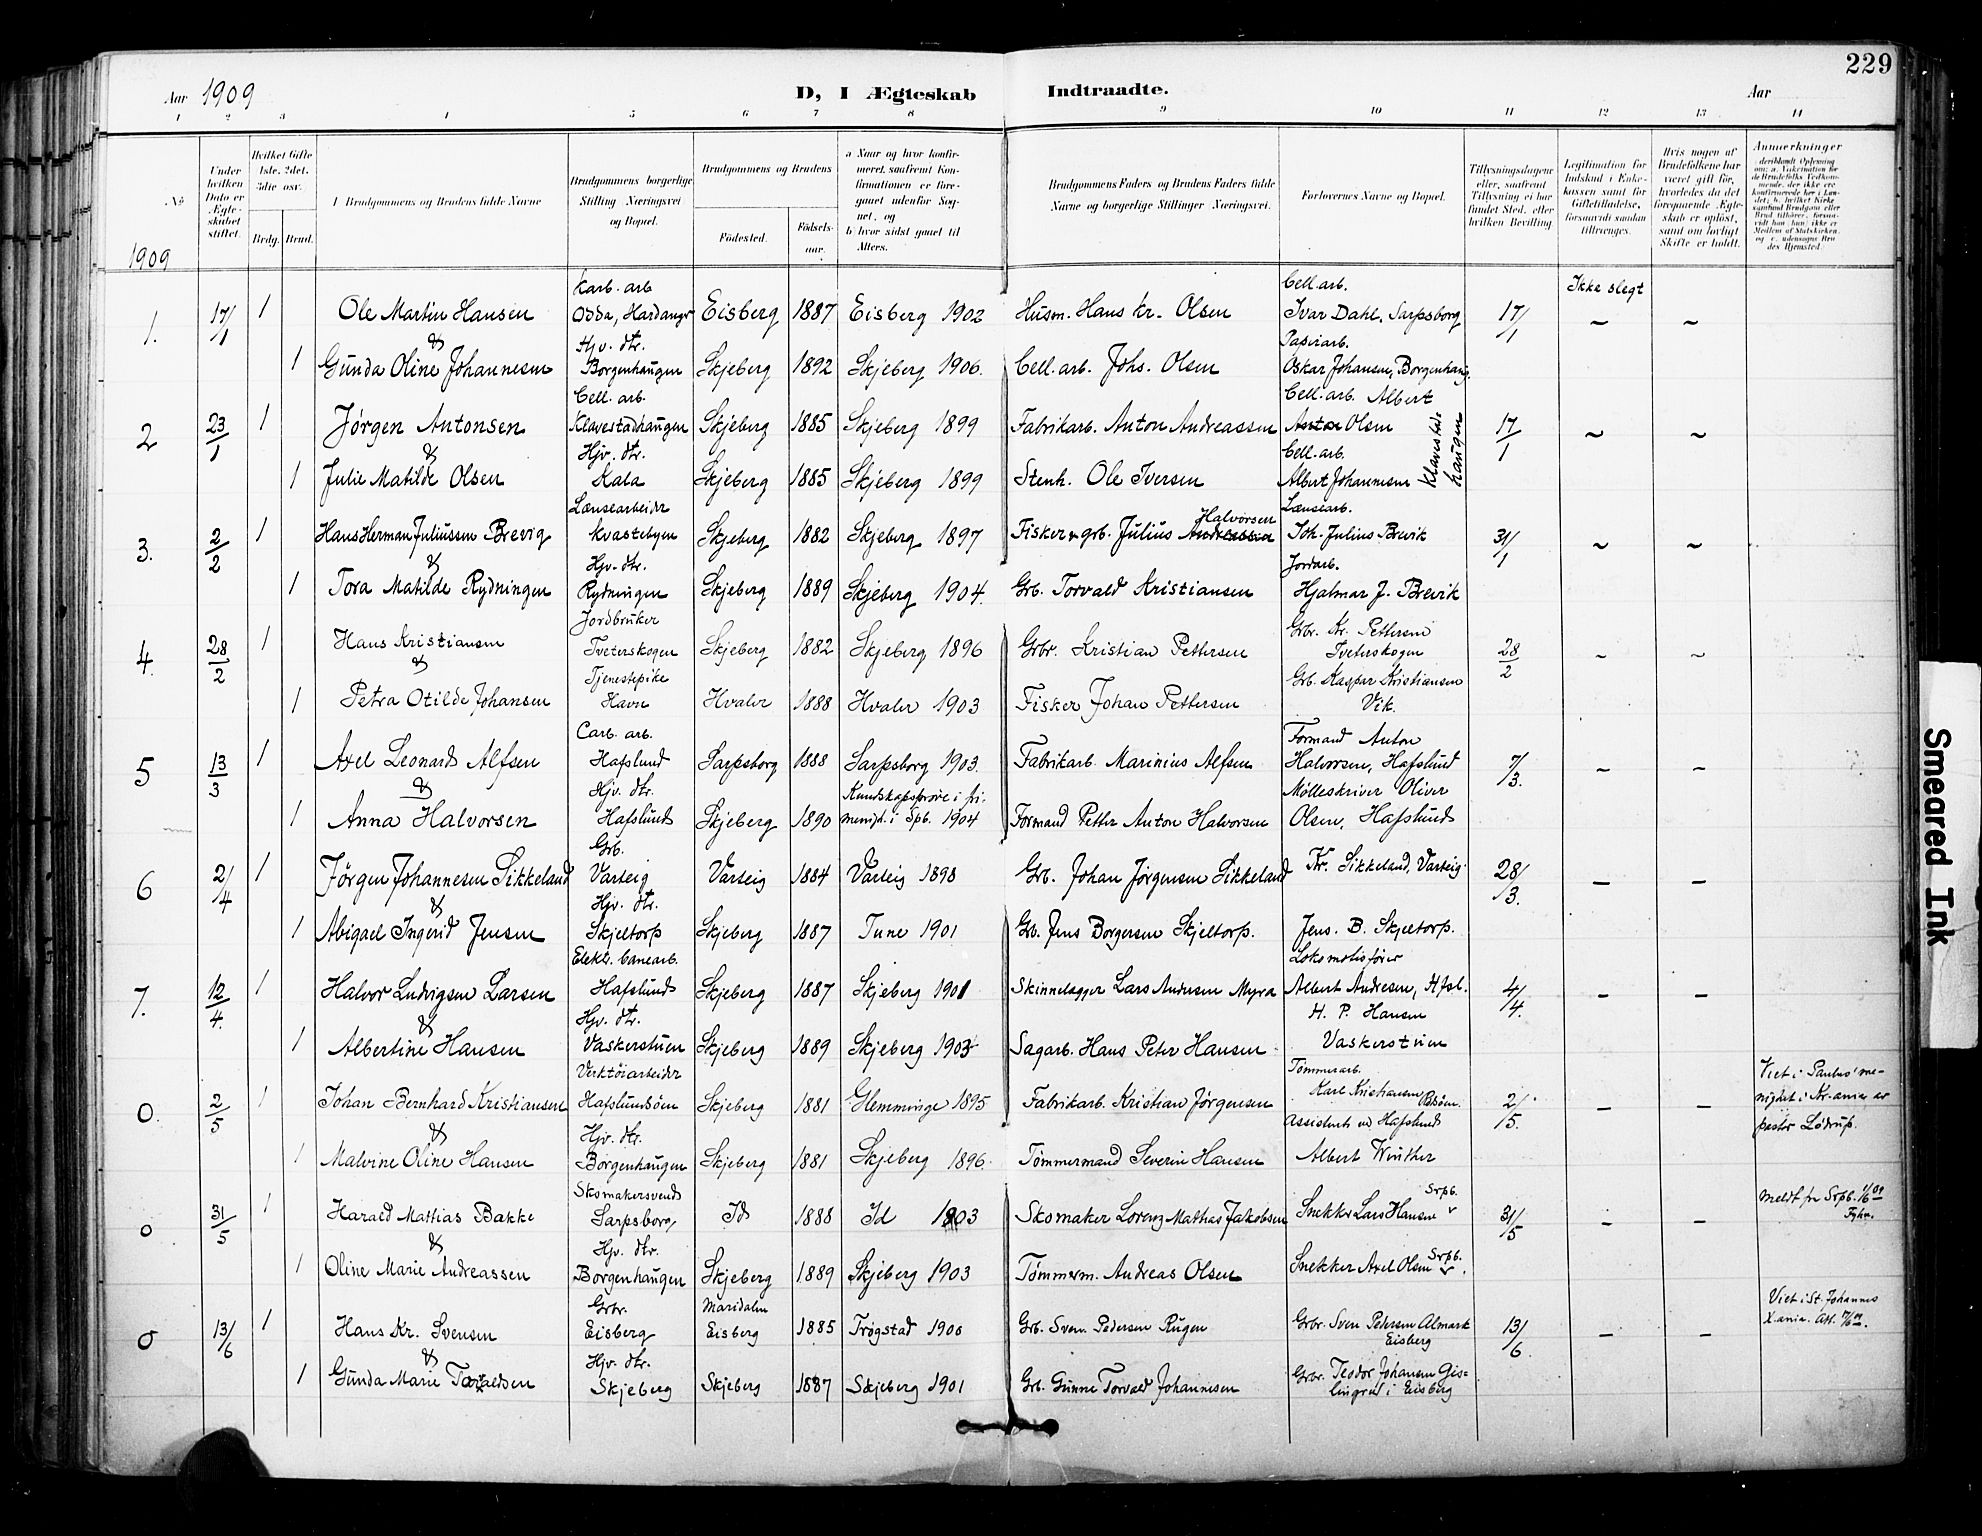 229
Aar 1909 D, I Ægteskab Indtraadte. Aar
1 2 3 4 5 6 7 8 9 10 11 12 13 14
No
Under hvilken Dato er Ægteskabet stiftet.
Hvilket Gifte 1ste, 2det, 3die osv.
Brdg. Brud.
I Brudgommens og Brudens fulde Navne
Brudgommens borgerlige Stilling Næringsvei og Bopæl.
Brudgommens og Brudens
Födested. Födselsaar.
a Naar og hvor konfirmeret, saafremt Konfirmationen er foregaaet udenfor Sognet, og
b hvor sidst gaaet til Alters.
Brudgommens Faders og Brudens Faders fulde Navne og borgerlige Stillinger Næringsvei.
Forlovernes Navne og Bopæl.
Tillysningsdagene eller, saafremt Tillysning ei har fundet Sted, efter hvilken Bevilling
Legitimation for Indskud i Enkekassen samt for Giftetilladelse, forsaavidt saadan tiltrænges.
Hvis nogen af Brudefolkene har været gift før, hvorledes da det foregaaende Ægteskab er opløst, samt om lovligt Skifte er holdt.
Anmerkninger
1909
Karb. arb. Cell. arb. Ikke slegt
1. 17/1 1 Ole Martin Hansen Odda, Hardanger Eisberg 1887 Eisberg 1902 Husm. Hans Kr. Olsen Ivar Dahl, Sarpsborg 17/1 ~ ~
& Hjv. dtr. Papirarb.
1 Gunda Oline Johannesen Borgenhaugen Skjeberg 1892 Skjeberg 1906. Cell. arb. Johs. Olsen Oskar Johansen, Borgenhaug.
Cell. arb. Cell. arb. Albert
2 23/1 1 Jørgen Antonsen Klavestadhaugen Skjeberg 1885 Skjeberg 1899 Fabrikarb. Anton Andreassen Anton Olsen Klavestadhaugen 17/1 ~ ~
& Hjv. dtr. Cell. arb.
1 Julie Matilde Olsen Kala Skjeberg 1885 Skjeberg 1899 Stenh. Ole Iversen Albert Johannesen
Lænsearbeider Halvorsen Lænsearb.
3. 2/2 1 Hans Herman Juliussen Brevig Kvastebyen Skjeberg 1882 Skjeberg 1897 Fisker & grb. Julius Andreassen Joh. Julius Brevik 31/1 ~ ~
& Hjv. dtr. Jordarb.
1 Tora Matilde Rydningen Rydningen Skjeberg 1889 Skjeberg 1904. Grb. Torvald Kristiansen Hjalmar J. Brevik
Jordbruker Grbr. Kr. Pettersen
4. 28/2 1 Hans Kristiansen Tveterskogen Skjeberg 1882 Skjeberg 1896 Grbr. Kristian Pettersen Tveterskogen 28/2 ~ ~
& Tjenestepike Grb. Kaspar Kristiansen
1 Petra Otilde Johansen Havn Hvaler 1888 Hvaler 1903 Fisker Johan Pettersen Vik.
Carb. arb. Formand Anton
5 13/3 1 Axel Leonard Alfsen Hafslund Sarpsborg 1888 Sarpsborg 1903. Fabrikarb. Marinius Alfsen Halvorsen, Hafslund 7/3. ~ ~
& Hjv. dtr. Kundskapsprøve i fri- Mølleskriver Oliver
1 Anna Halvorsen Hafslund Skjeberg 1890 menigh. i Spb. 1904 Formand Petter Anton Halvorsen Olsen, Hafslund
Grb.
6 2/4 1 Jørgen Johannesen Sikkeland Varteig Varteig 1884 Varteig 1898 Grb. Johan Jørgensen Sikkeland Kr. Sikkeland, Varteig 28/3. – –
& Hjv. dtr.
1 Abigael Ingerid Jensen Skjeltorp Skjeberg 1887 Tune 1901 Grb. Jens Borgersen Skjeltorp. Jens. B. Skjeltorp.
Elektr. banearb. Lokomotivfører
7. 12/4. 1 Halvor Ludvigsen Larsen Hafslund Skjeberg 1887 Skjeberg 1901 Skinnelægger Lars Andersen Myra Albert Andresen, Hfsl. 4/4. – –
& Hjv. dtr. H. P. Hansen
1 Albertine Hansen Vaskerstuen Skjeberg 1889 Skjeberg 1903 Sagarb. Hans Peter Hansen Vaskerstuen
Verktøiarbeider Tømmerarb. Viet i Paulus' me-
0. 2/5 1 Johan Bernhard Kristiansen Hafslundsøen Skjeberg 1881 Glemminge 1895 Fabrikarb. Kristian Jørgensen Karl Kristiansen, 2/5. – – nighet i Kr.ania av
& Hjv. dtr. Assistent ved Hafslund pastor Lødrup.
1 Malvine Oline Hansen Borgenhaugen Skjeberg 1881 Skjeberg 1896. Tömmermand Severin Hansen Albert Winther
Skomakersvend Srpb. Meldt fra Srpb.
0 31/5 1 Harald Mathias Bakke Sarpsborg Id 1888 Id 1903 Skomaker Lorenz Mathias Jakobsen Snekker Lars Hansen 31/5 – –
& Hjv. dtr. Srpb.
1 Oline Marie Andreassen Borgenhaugen Skjeberg 1889 Skjeberg 1903 Tömmerm. Andreas Olsen Snekker Axel Olsen
Grbr. Maridalen Viet i St. Johannes
0 13/6 1 Hans Kr. Svensen Eisberg Eisberg 1885 Trøgstad 1900 Grb. Sven Pedersen Rugen Grbr. Sven Pedersen Almark Eisberg 13/6 – – X.ania. Att.
& Hjv. dtr.
1 Gunda Marie Torvaldsen Skjeberg Skjeberg 1887 Skjeberg 1901 Grb. Gunne Torvald Johannesen Grbr. Teodor Johansen Gis-
lingrud i Eisberg
Smeared Ink